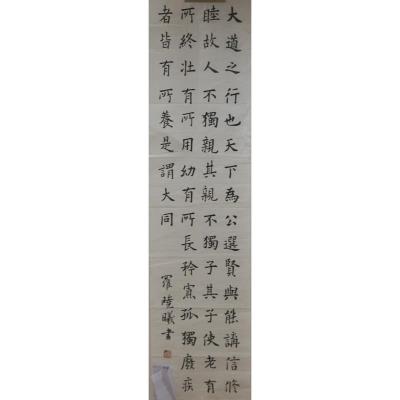 大道之行也天下為公選賢與能講信修
睦故人不獨親其親不獨子其子使老有
所終壯有所用幼有所長矜寡孤獨廢疾
者皆有所養是謂大同
羅曦書